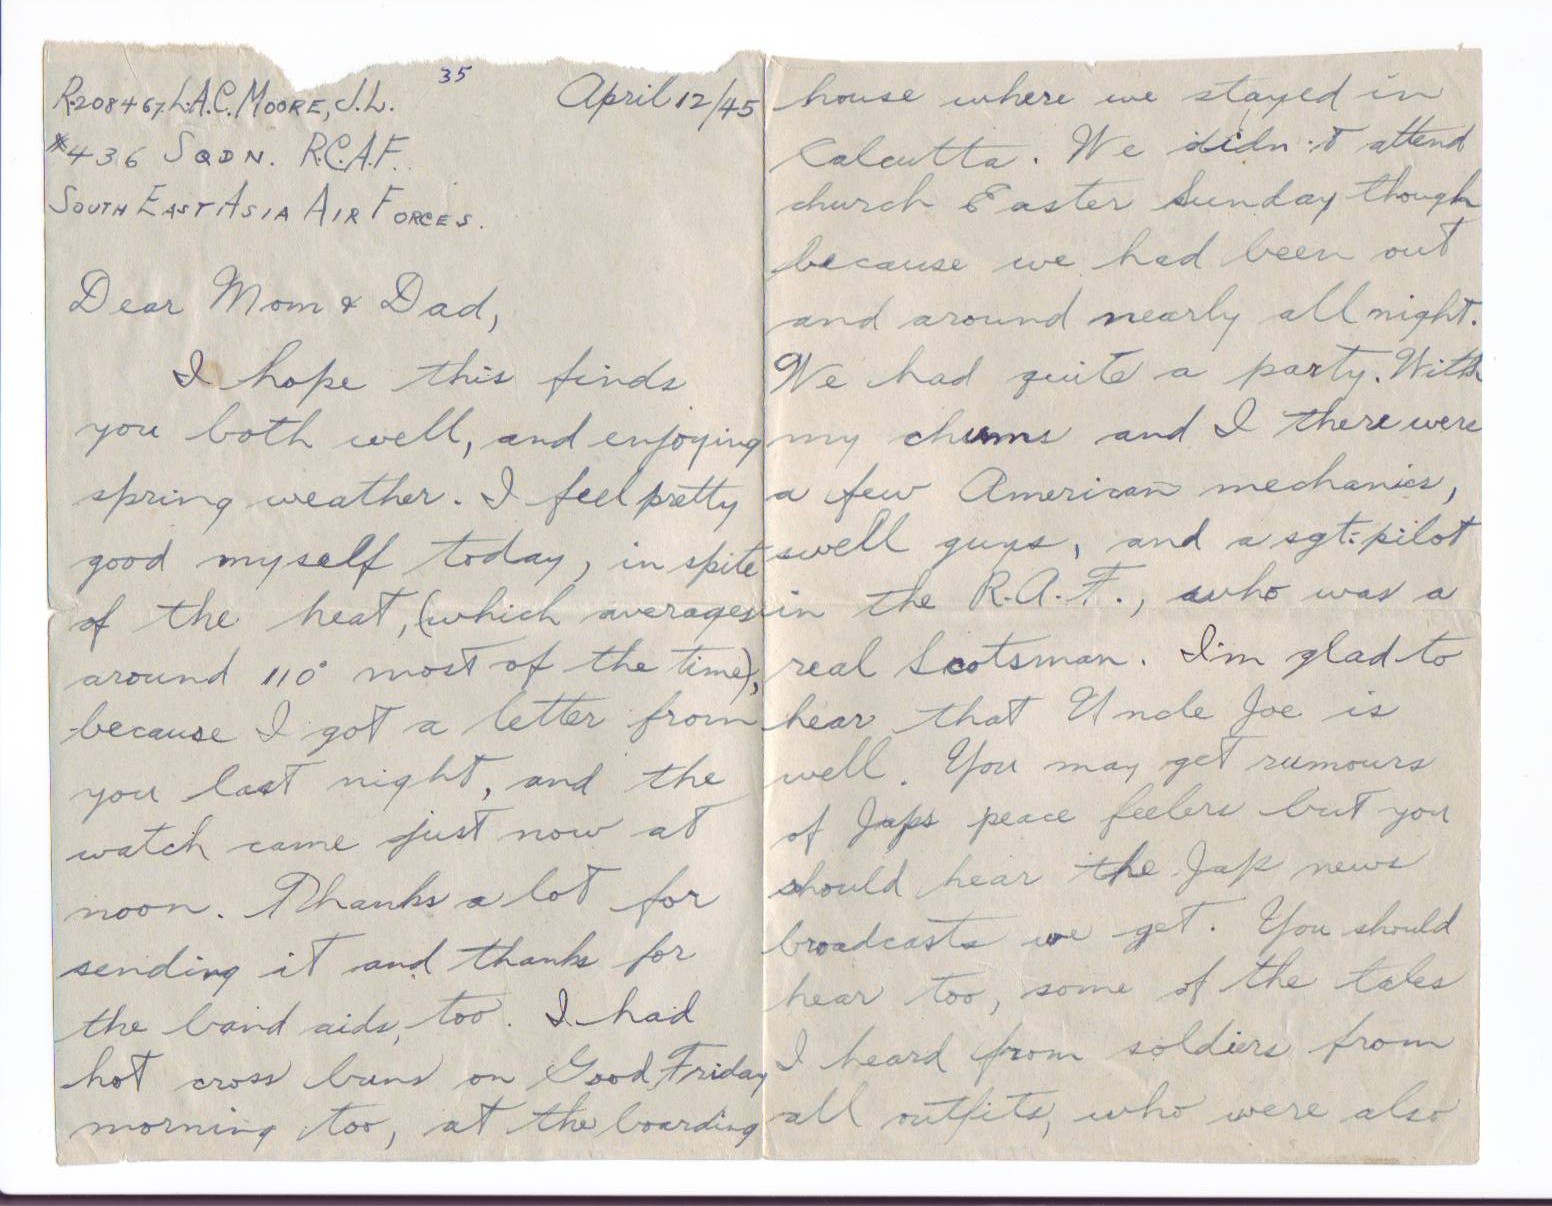 35
R208467 L.A.C. MOORE, J.L. April 12/45
#436 SQDN. R.C.A.F.
SOUTH EAST ASIA AIR FORCES.
Dear Mom & Dad,
I hope this finds
you both well, and enjoying
spring weather. I feel pretty
good myself today, in spite
of the heat, (which averages
around 110° most of the time),
because I got a letter from
you last night, and the
watch came just now at
noon. Thanks a lot for
sending it and thanks for
the band aids, too. I had
hot cross buns on Good Friday
morning too, at the boarding
house where we stayed in
Calcutta. We didn't attend
church Easter Sunday though
because we had been out
and around nearly all night.
We had quite a party. With
my chums and I there were
a few American mechanics,
swell guys, and a sgt-pilot
in the R.A.F., who was a
real Scotsman. I'm glad to
hear that Uncle Joe is
well. You may get rumours
of Japs peace feelers but you
should hear the Jap news
broadcasts we get. You should
hear too, some of the tales
I heard from soldiers from
all outfits, who were also